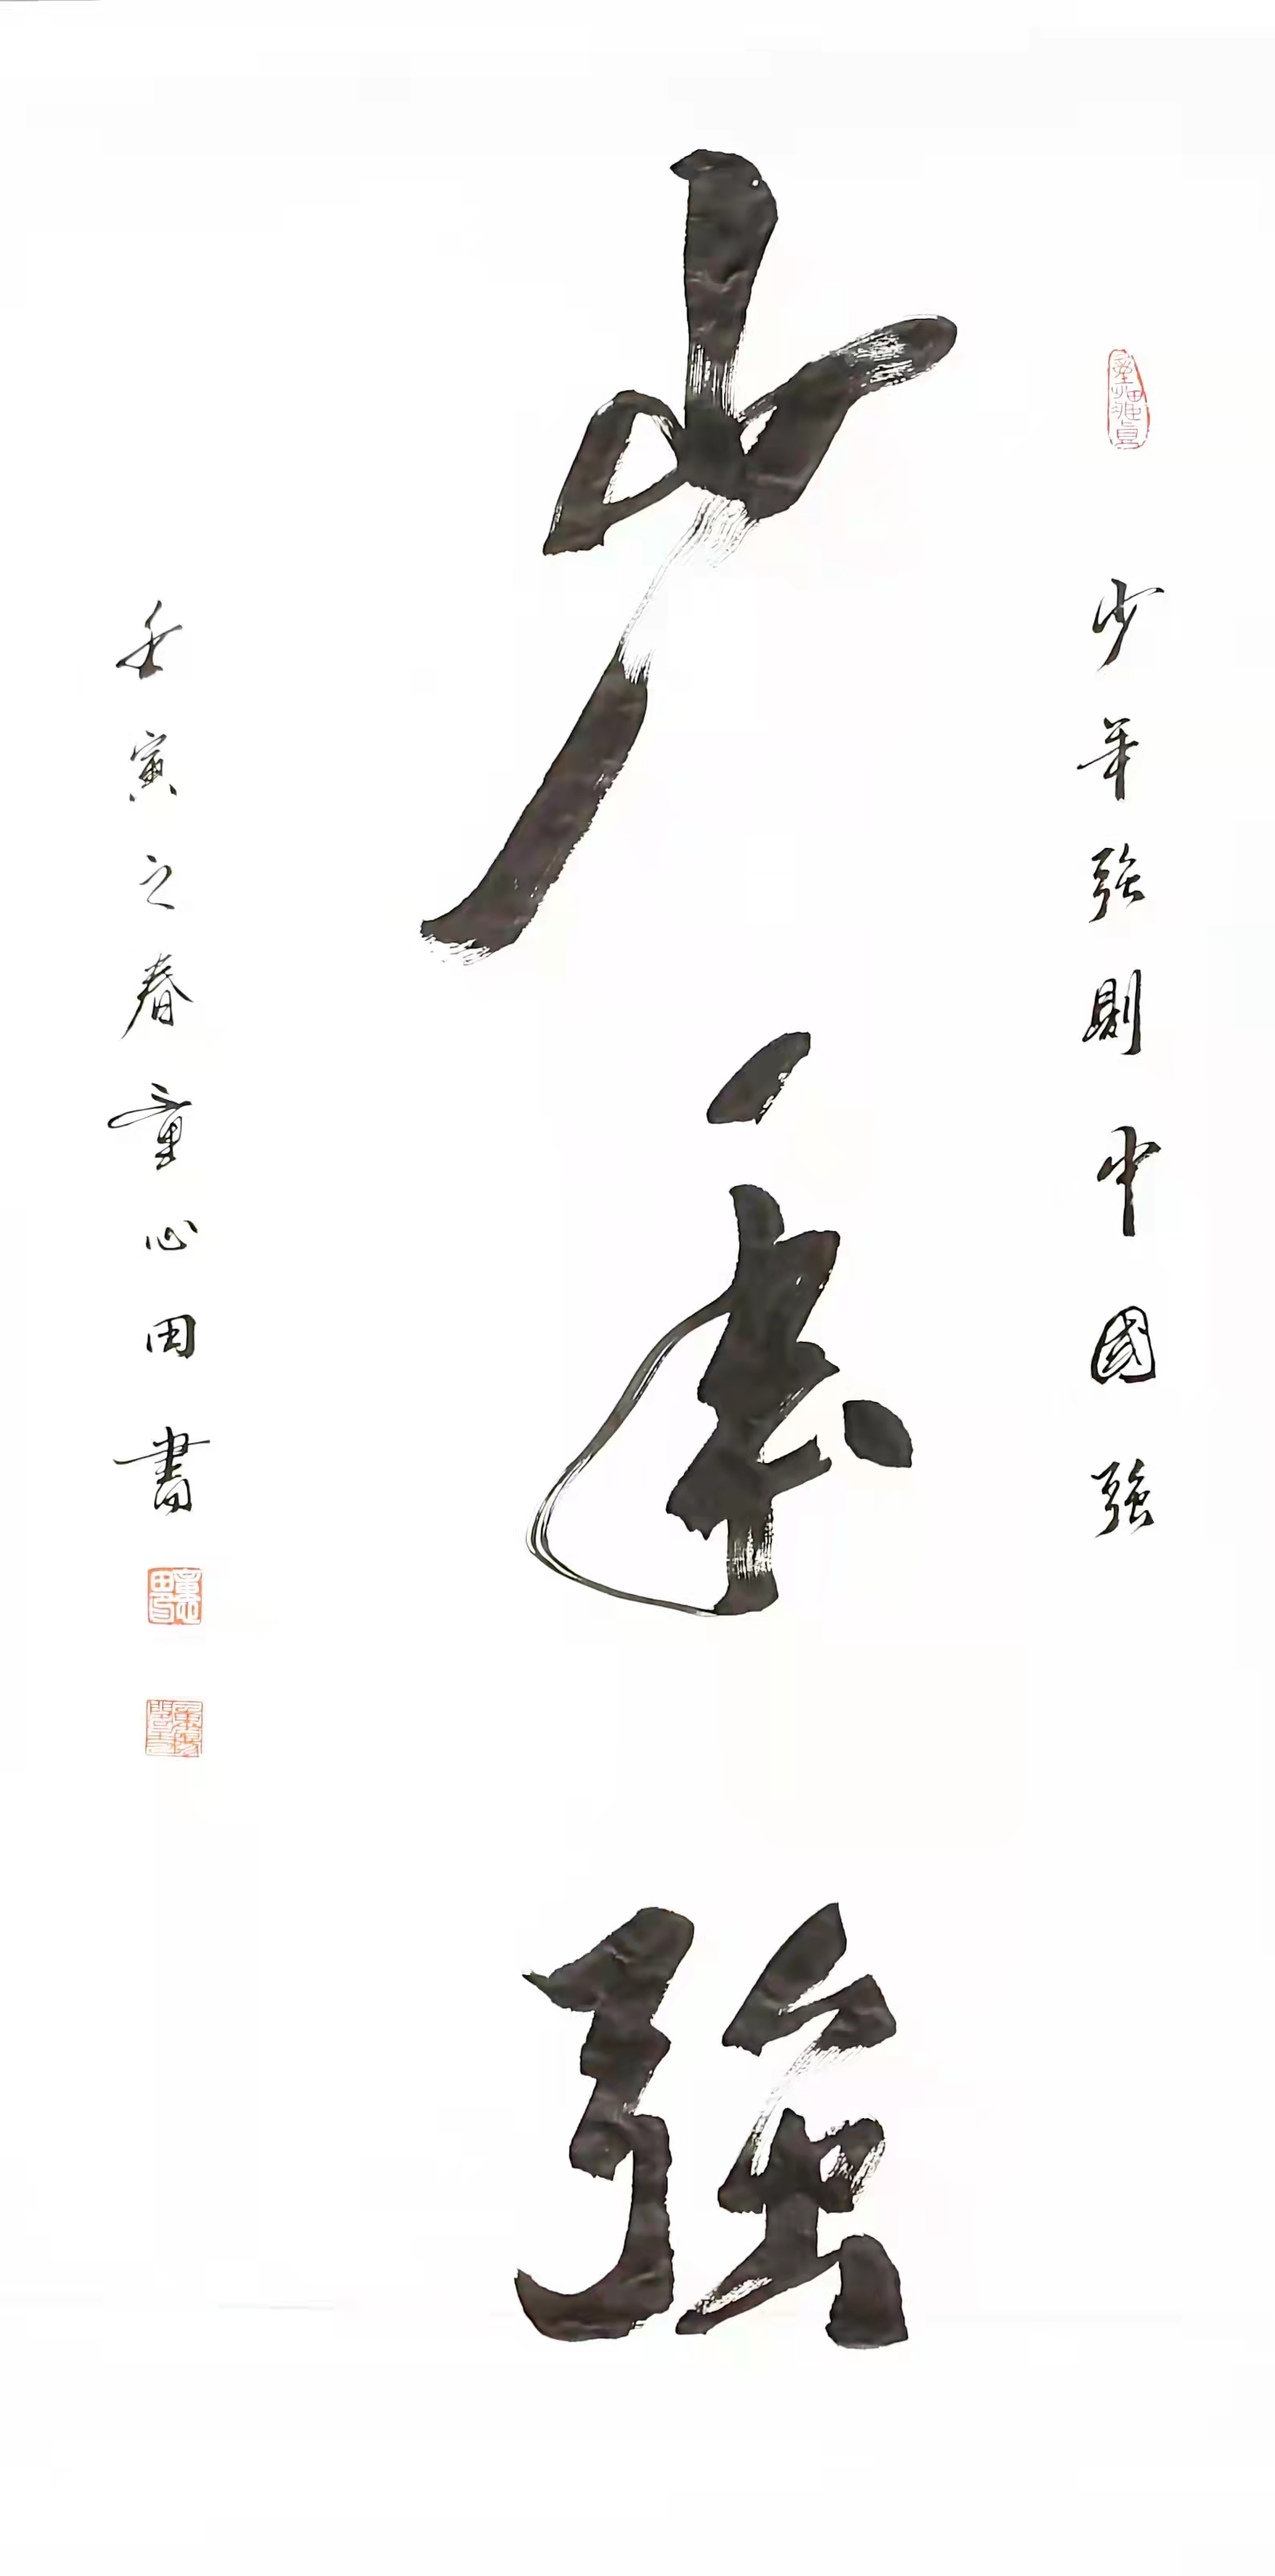 少年强則中國强
少年強
壬寅之春童心田書